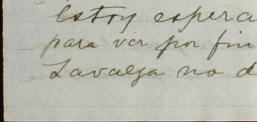 estoy espera
para ver por fin
Lavalja no d